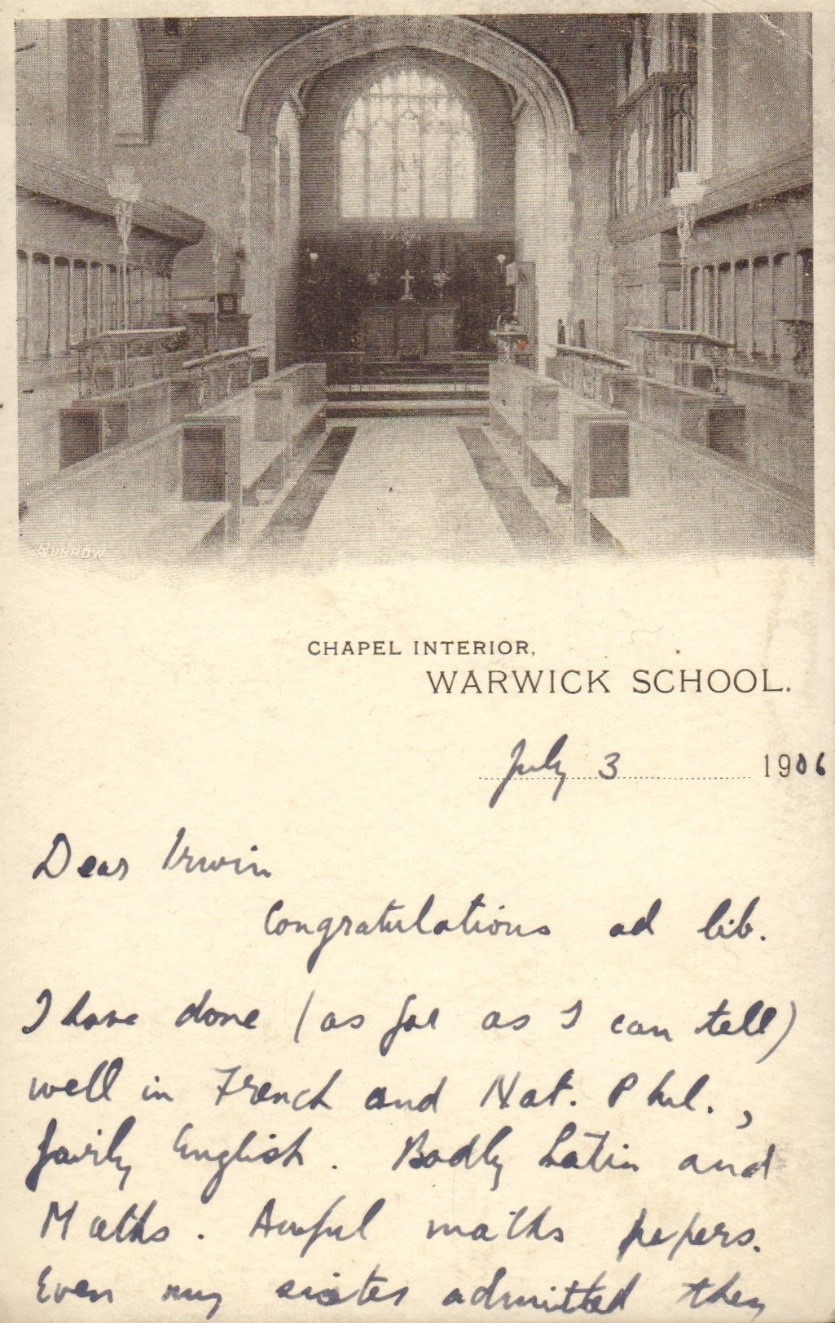 BURROW
CHAPEL INTERIOR,
WARWICK SCHOOL.
July 3 1906
Dear Irwin
Congratulations ad lib.
I have done (as far as I can tell)
well in French and Nat. Phil.,
fairly English. Badly Latin and
Maths. Awful maths papers.
Even my sister admitted they